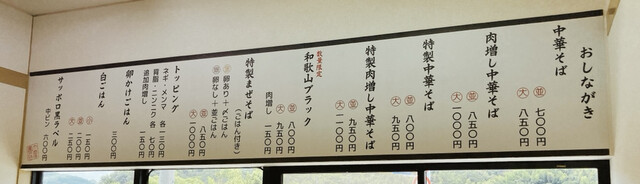 おしながき
中華そば
並 七〇〇円
大 八五〇円
肉増し中華そば
並 八五〇円
大 一〇〇〇円
特製中華そば
並 八〇〇円
大 九五〇円
特製肉増し中華そば
並 九五〇円
大 一一〇〇円
数量限定
和歌山ブラック
並 八〇〇円
大 九五〇円
肉増し 一五〇円
特製まぜそば
(ごはん付き)
卵あり+〆ごはん
卵なし+釜ごはん
並 八五〇円
大 一〇〇〇円
トッピング
ネギ・メンマ 各一三〇円
背脂・ニンニク 各七〇円
追加肉増し 一五〇円
卵かけごはん
三〇〇円
白ごはん
小 一五〇円
並 二〇〇円
大 二五〇円
サッポロ黒ラベル
中ビン 六〇〇円